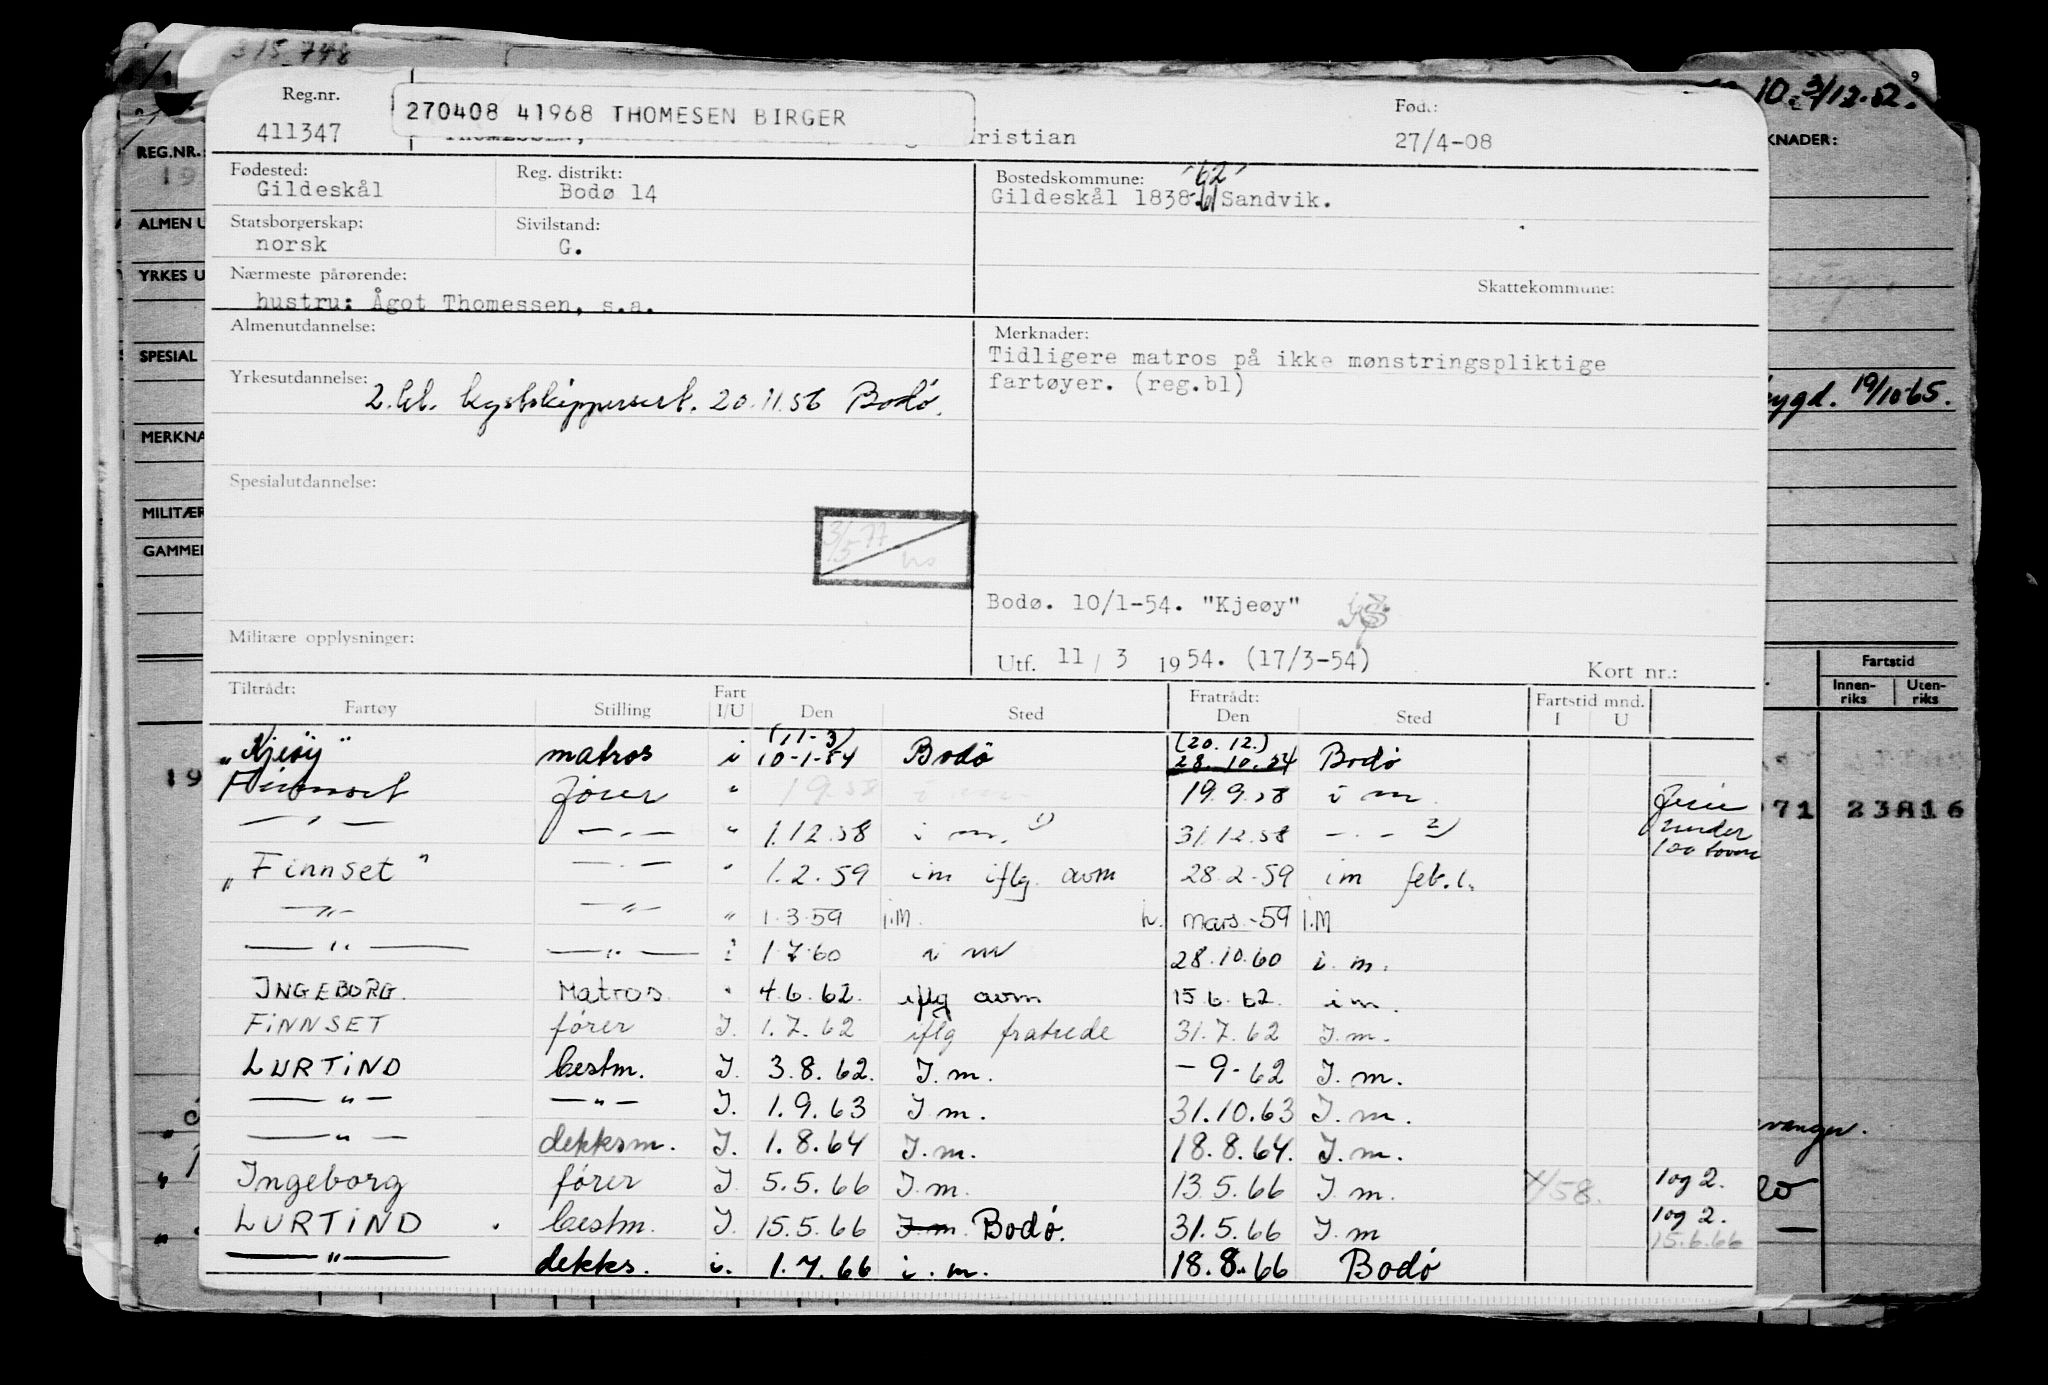 315748
9
10. 3/12.52.
Reg.nr.
411347
270408 41968 THOMESEN BIRGER
ristian
Født:
27/4-08
REG.NR.
19
KNADER:
Fødested:
Gildeskål
Reg. distrikt:
Bodø 14
Bostedskommune:
"62"
Gildeskål 1838-61 Sandvik.
ALMEN U
Statsborgerskap:
norsk
Sivilstand:
G.
YRKES U
Nærmeste pårørende:
hustru: Ågot Thomessen, s.a.
Skattekommune:
Almenutdannelse:
Merknader:
Tidligere matros på ikke mønstringspliktige
fartøyer. (reg.bl)
SPESIAL
Yrkesutdannelse:
2.kl. kystskippersert. 20.11.56 Bodø.
bygd. 19/10-65.
MERKNA
Spesialutdannelse:
MILITÆR
GAMMEL
3/5-77
Bodø. 10/1-54. "Kjeøy"
Militære opplysninger:
Utf. 11/3 1954. (17/3-54)
Kort nr.:
Fartstid
Innen-riks Uten-riks
Tiltrådt:
Fartøy Stilling Fart I/U Den Sted Fratrådt: Den Sted Fartstid mnd. I U
"Kjeøy" matros i (11-3) 10-1-54 Bodø (20.12.) 28.10.54 Bodø
Finnset fører " 1 9.58 i m 19.9.58 i m. Ferie
— " — — " — " 1.12.58 i m. 1) 31.12.58 — " — 2) under 100 tonn
"Finnset" — " — " 1.2.59 im iflg. avm 28.2-59 im feb.l.
— " — — " — " 1.3.59 i.M. h. mars-59 i.M
— " — — " — i 1.7.60 i m 28.10.60 i. m.
INGEBORG. Matros " 4.6.62. iflg avm 15.6.62. i m.
FiNNSET fører I. 1.7.62 iflg fratrede 31.7.62 I.m.
LURTiND bestm. I. 3.8.62. I.m. -9-62 I.m.
— " — — " — I. 1.9.63 I.m. 31.10.63 I.m.
— " — dekksm. I. 1.8.64 I.m. 18.8.64. I.m.
Ingeborg fører I 5.5.66 I.m. 13.5.66 I.m. 4/58. 1 og 2.
LURTiND bestm. I. 15.5.66 I.m. Bodø. 31.5.66 I.m 1 og 2.
15.6.66
— " — dekks. i. 1.7.66 i.m. 18.8.66 Bodø
19
71 23816
vanger.